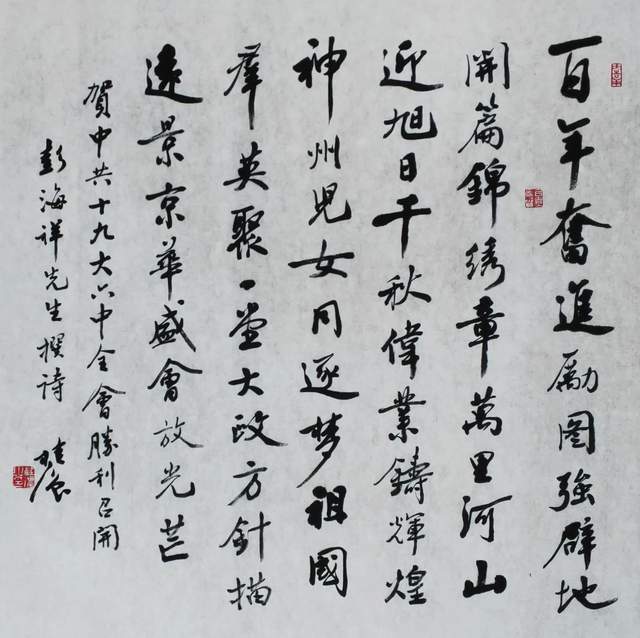 百年奮進勵图強辟地
開篇錦绣章萬里河山
迎旭日千秋偉業鑄輝煌
神州兒女同逐梦祖國
羣英聚一堂大政方針描
遠景京華盛會放光芒
賀中共十九大六中全會勝利召開
彭海祥先生撰詩